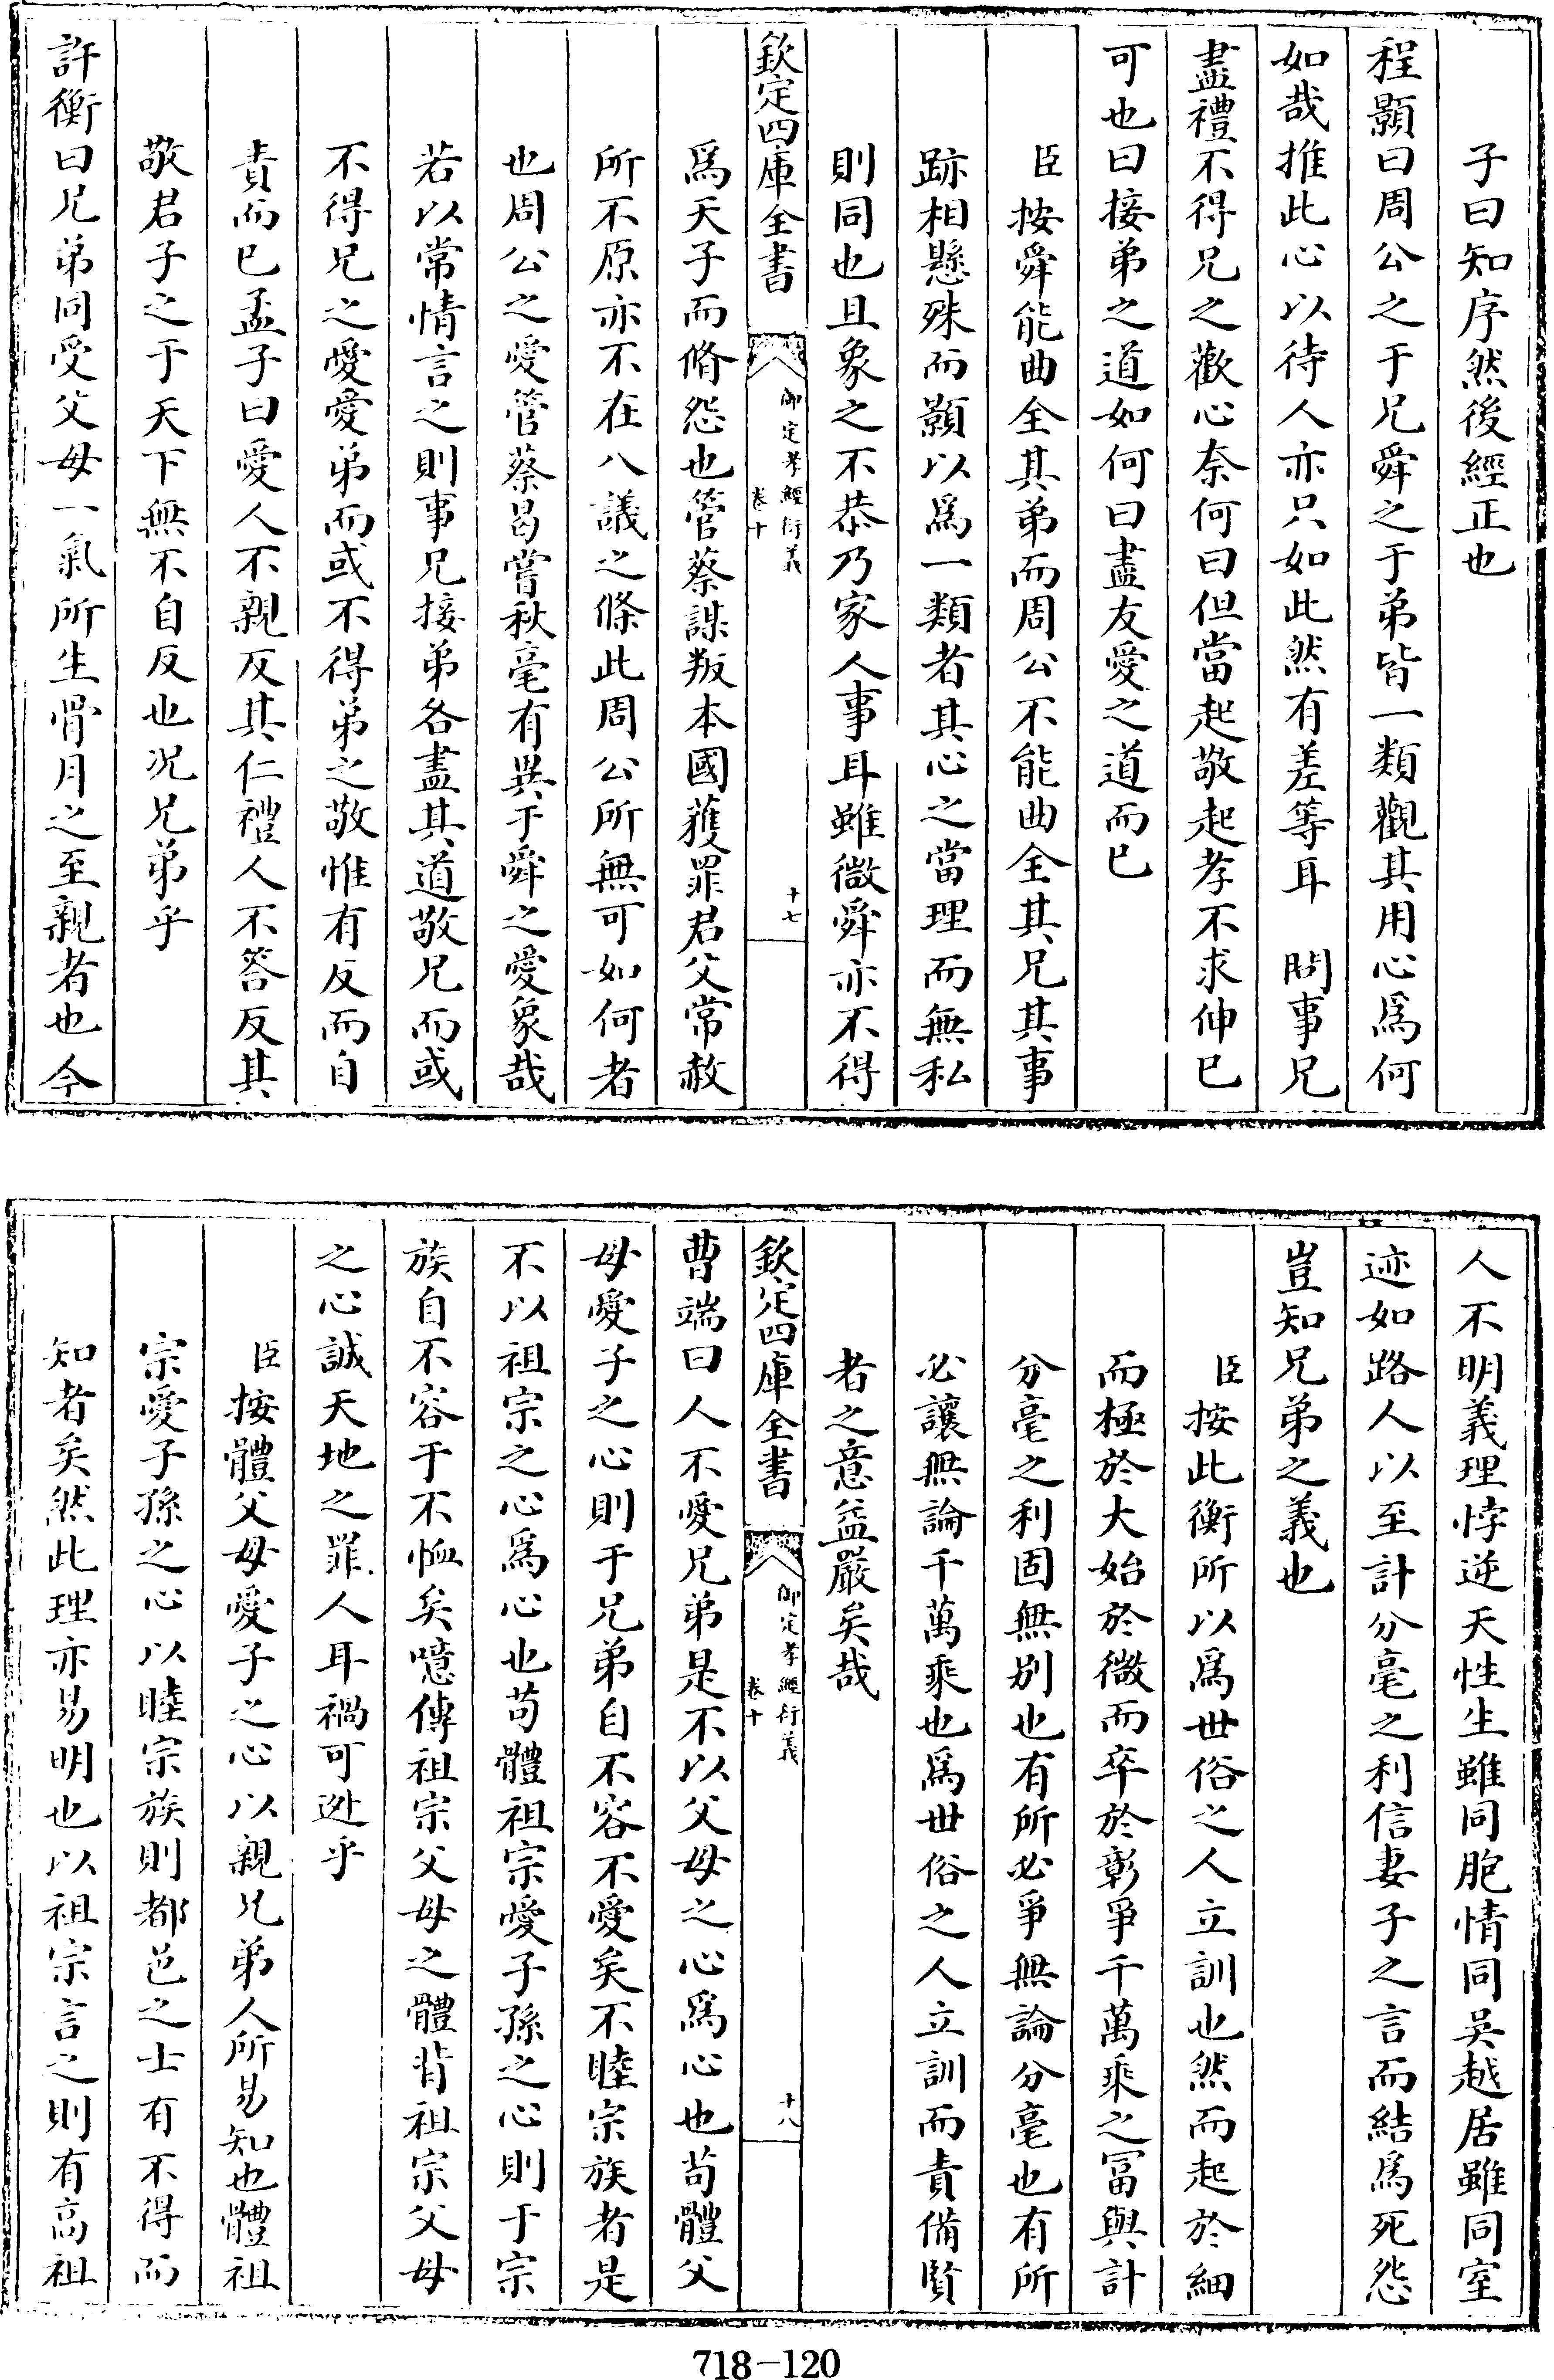 子曰知序然後經正也
程顥曰周公之于兄舜之于弟皆一類觀其用心為何
如哉推此心以待人亦只如此然有差等耳　問事兄
盡禮不得兄之歡心奈何曰但當起敬起孝不求伸已
可也曰接弟之道如何曰盡友愛之道而已
臣按舜能曲全其弟而周公不能曲全其兄其事
跡相懸殊而顥以為一類者其心之當理而無私
則同也且象之不恭乃家人事耳雖微舜亦不得
欽定四庫全書
御定孝經衍義
卷十
十七
為天子而脩怨也管蔡謀叛本國獲罪君父常赦
所不原亦不在八議之條此周公所無可如何者
也周公之愛管蔡曷嘗秋毫有異于舜之愛象哉
若以常情言之則事兄接弟各盡其道敬兄而或
不得兄之愛愛弟而或不得弟之敬惟有反而自
責而已孟子曰愛人不親反其仁禮人不答反其
敬君子之于天下無不自反也况兄弟乎
許衡曰兄弟同受父母一氣所生骨月之至親者也今
人不明義理悖逆天性生雖同胞情同吳越居雖同室
迹如路人以至計分毫之利信妻子之言而結為死怨
豈知兄弟之義也
臣按此衡所以為世俗之人立訓也然而起於細
而極於大始於微而卒於彰爭千萬乘之富與計
分毫之利固無别也有所必爭無論分毫也有所
必讓無論千萬乘也為世俗之人立訓而責備賢
者之意益嚴矣哉
欽定四庫全書
御定孝經衍義
卷十
十八
曹端曰人不愛兄弟是不以父母之心為心也苟體父
母愛子之心則于兄弟自不容不愛矣不睦宗族者是
不以祖宗之心為心也苟體祖宗愛子孫之心則于宗
族自不容于不恤矣噫傳祖宗父母之體背祖宗父母
之心誠天地之罪人耳禍可逃乎
臣按體父母愛子之心以親兄弟人所易知也體祖
宗愛子孫之心以睦宗族則都邑之士有不得而
知者矣然此理亦易明也以祖宗言之則有高祖
718-120